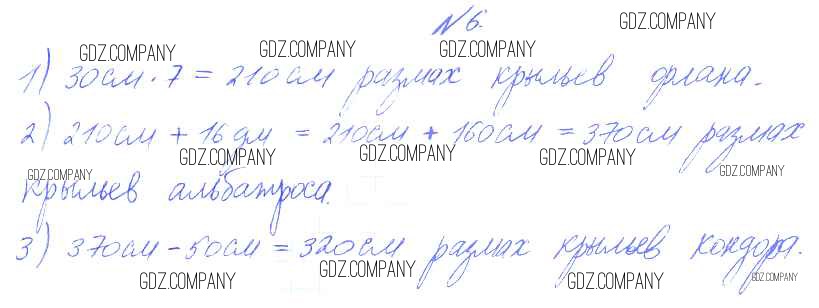 №6.
GDZ.COMPANY
GDZ.COMPANY GDZ.COMPANY GDZ.COMPANY
1) 30см·7 = 210см размах крыльев орлана.
2) 210см + 16дм = 210см + 160см = 370см размах
GDZ.COMPANY GDZ.COMPANY GDZ.COMPANY
GDZ.COMPANY GDZ.COMPANY
крыльев альбатроса.
3) 370см - 50см = 320см размах крыльев кондора.
GDZ.COMPANY GDZ.COMPANY GDZ.COMPANY GDZ.COMPANY